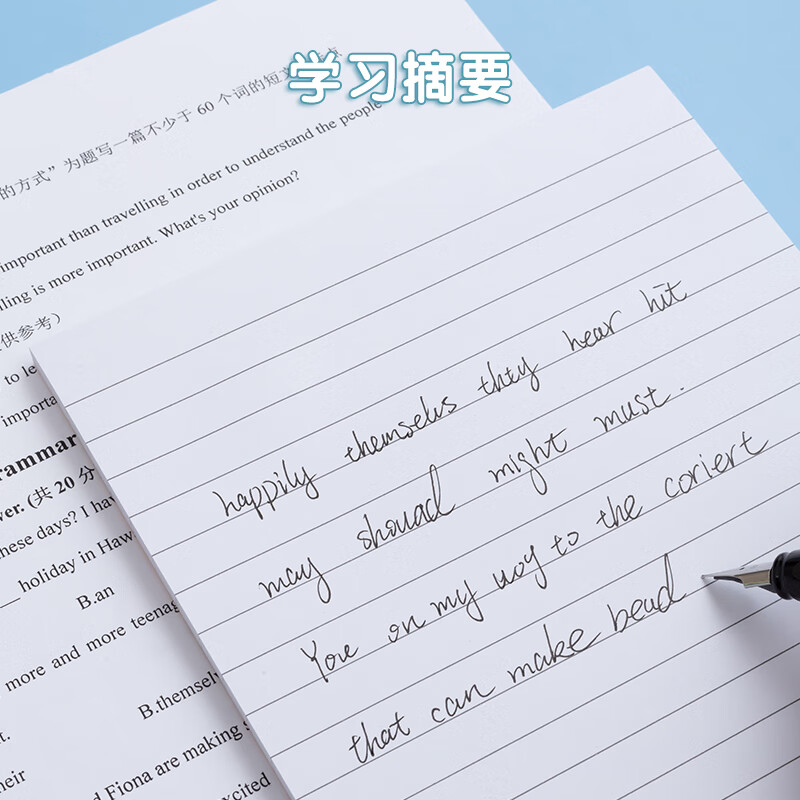 学习摘要
的方式”为题写一篇不少于 60 个词的短文
important than travelling in order to understand the people
ling is more important. What's your opinion?
供参考）
to le
importa
rammar
wer. (共 20 分
hese days? I hav
holiday in Haw
B.an
more and more teenag
B.themselv
t.
heir
d Fiona are making s
xcited
happily themselvs they hear hit
may shouad might must.
You on my way to the coriert
that can make bead